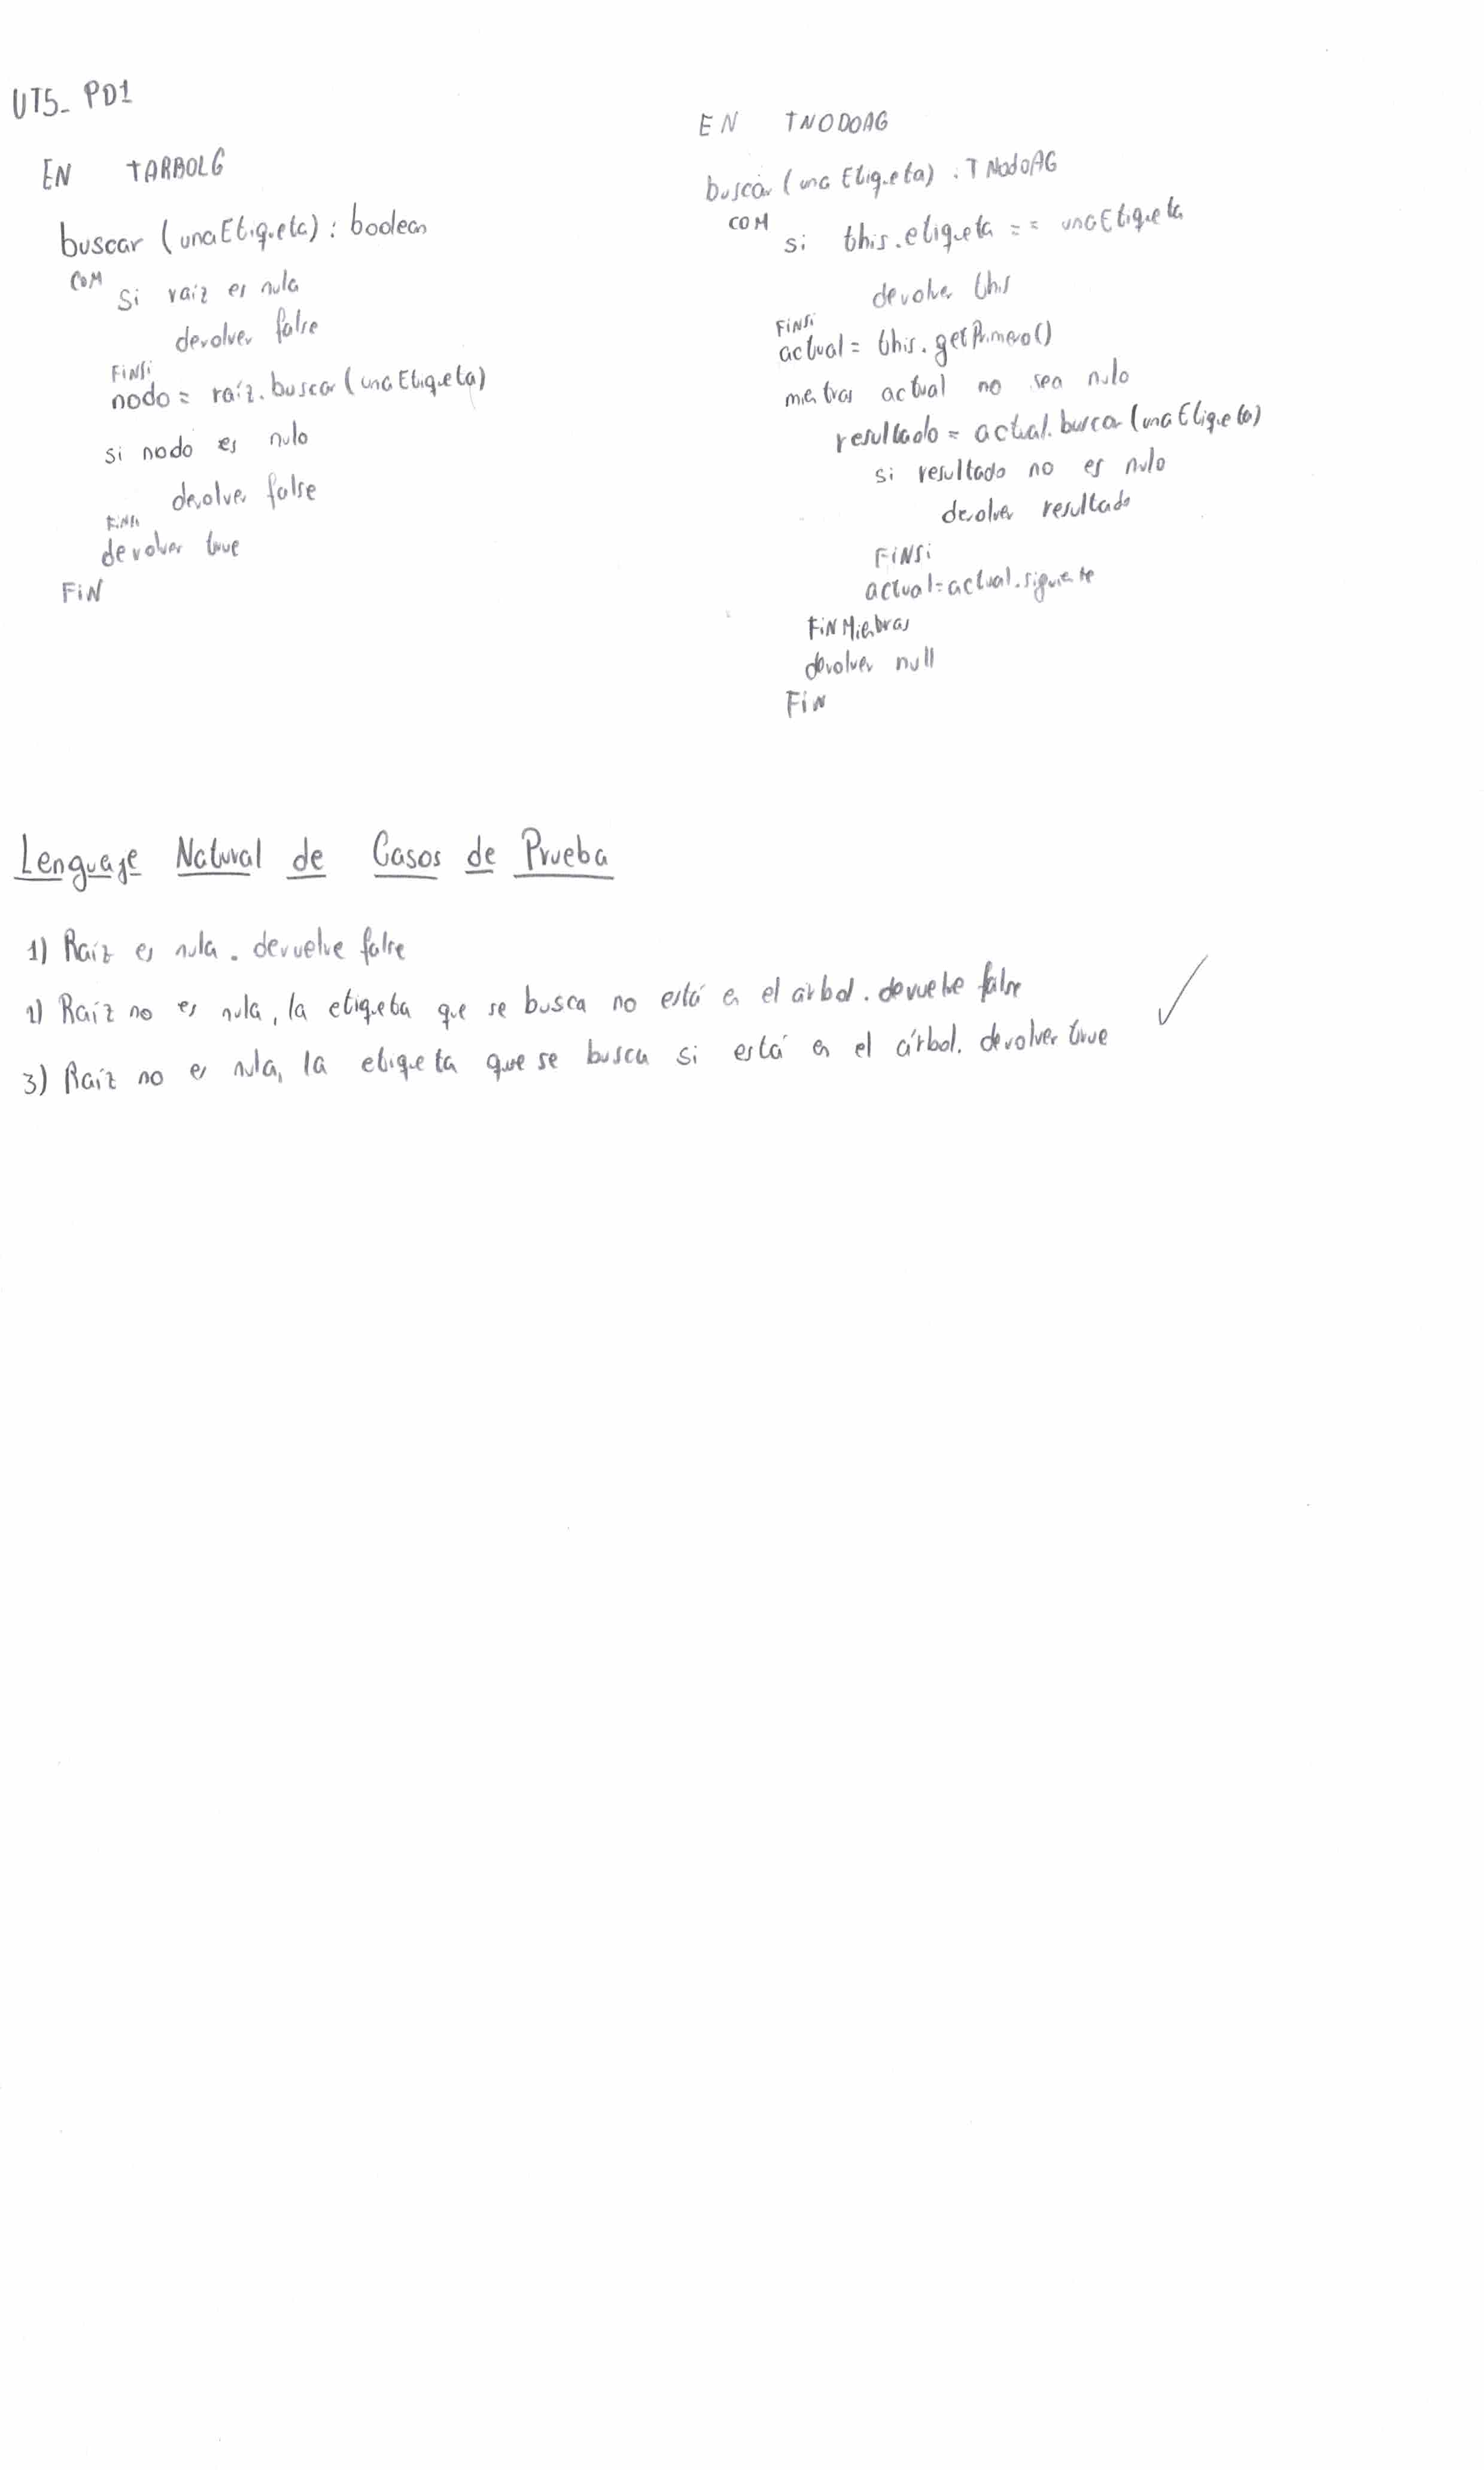 UT5_ PD1
EN TARBOLG
buscar (unaEtiqueta) : boolean
COM
Si raiz es nula
devolver false
FiNSi
nodo = raíz. buscar (unaEtiqueta)
si nodo es nulo
devolver false
FiNSi
devolver true
FiN
EN TNODOAG
buscar (una Etiqueta) : TNodoAG
COM
si this.etiqueta == unaEtiqueta
devolver this
FiNSi
actual = this. getPrimero()
mientras actual no sea nulo
resultado = actual. buscar (unaEtiqueta)
si resultado no es nulo
devolver resultado
FiNSi
actual = actual.siguiente
FiN Mientras
devolver null
FiN
Lenguaje Natural de Casos de Prueba
1) Raíz es nula. devuelve false
2) Raíz no es nula, la etiqueta que se busca no está en el árbol. devuelve false
3) Raíz no es nula, la etiqueta que se busca si está en el árbol. devolver true